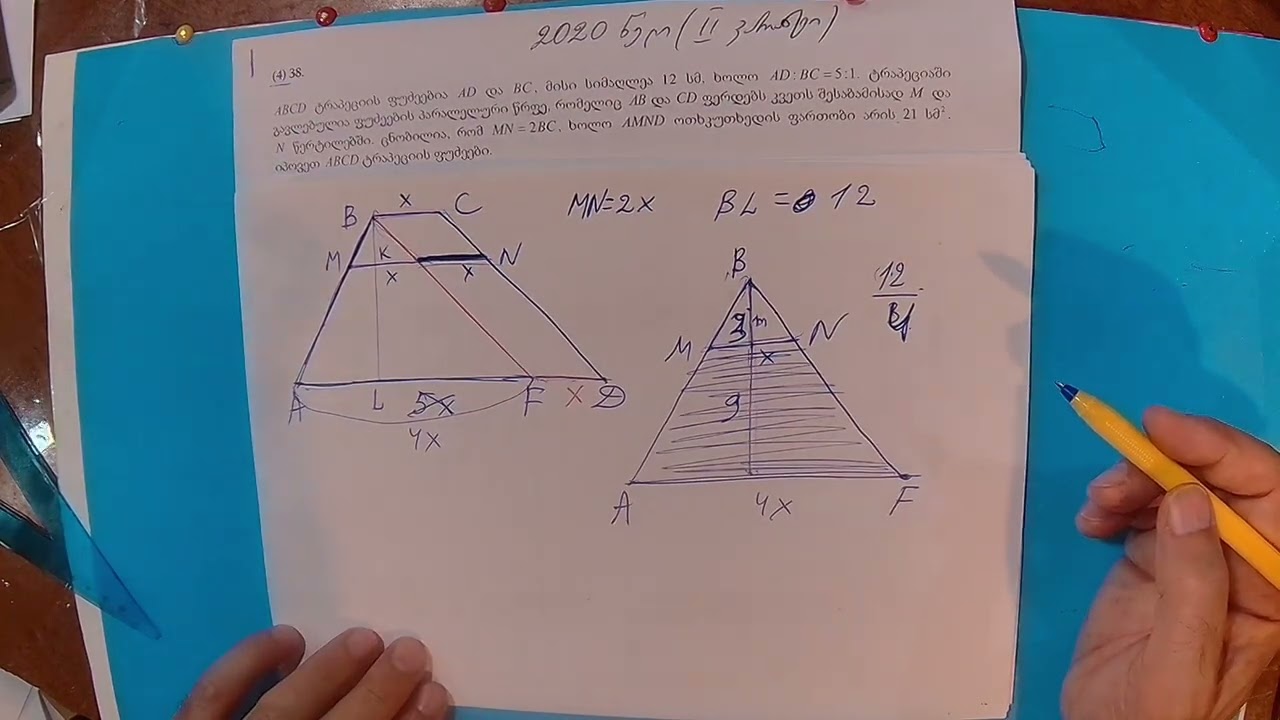 2020 წელი (II ვარიანტი)
1
(4) 38.
ABCD ტრაპეციის ფუძეებია AD და BC, მისი სიმაღლეა 12 სმ, ხოლო AD:BC=5:1. ტრაპეციაში
გავლებულია ფუძეების პარალელური წრფე, რომელიც AB და CD ფერდებს კვეთს შესაბამისად M და
N წერტილებში. ცნობილია, რომ MN=2BC, ხოლო AMND ოთხკუთხედის ფართობი არის 21 სმ².
იპოვეთ ABCD ტრაპეციის ფუძეები.
MN=2x BL = 12
B x C
M K N
x x
A L 5x F x D
4x
B
3 m
M x N
9
A 4x F
12